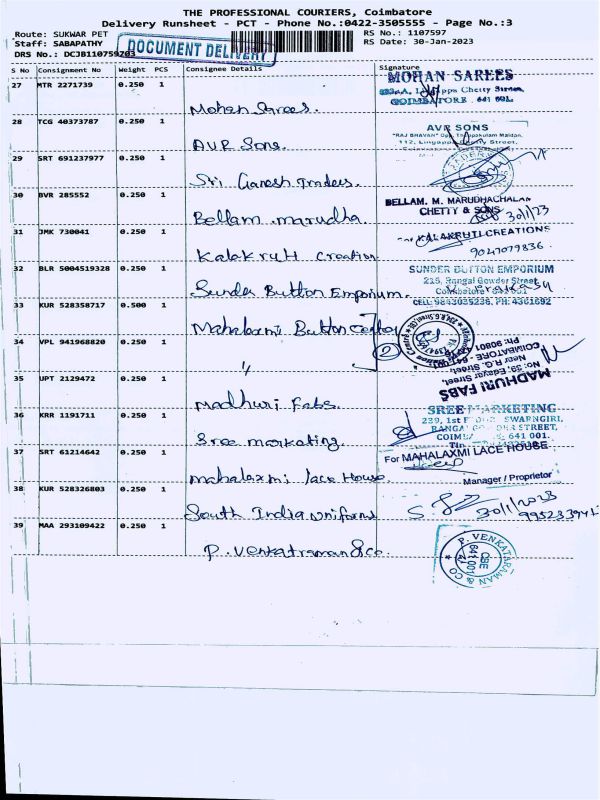 THE PROFESSIONAL COURIERS, Coimbatore
Delivery Runsheet - PCT - Phone No.:0422-3505555 - Page No.:3
Route: SUKWAR PET
RS No.: 1107597
Staff: SABAPATHY
DOCUMENT DELIVERY
RS Date: 30-Jan-2023
DRS No.: DCJB110759703
S No Consignment No Weight PCS Consignee Details Signature
27 MTR 2271739 0.250 1
MOHAN SAREES
Chetty Street,
COIMBATORE - 641 001.
Mohan Sarees.
28 TCG 40373787 0.250 1
AVR SONS
"RAJ BHAVAN"
112, Lingappa Chetty Street,
AVR Sons.
29 SRT 691237977 0.250 1
Sri Ganesh Traders.
30 BVR 285552 0.250 1
BELLAM. M. MARUDHACHALAM
CHETTY & SONS
30/1/23
Bellam marudha.
31 JMK 730041 0.250 1
KALAKRUTI CREATIONS
9047079836.
Kalakruti Creation
32 BLR 5004519328 0.250 1
SUNDER BUTTON EMPORIUM
215, Rangai Gowder Street,
Coimbatore - 641 001
CELL: 9843025236, PH: 4361692
Sunder Button Emporium.
33 KUR 528358717 0.500 1
Mahalaxmi Button center
2
34 VPL 941968820 0.250 1
"
35 UPT 2129472 0.250 1
MADHURI FABS
No: 39, Edayar Street,
Near R.G. Street,
COIMBATORE - 641 001
Madhuri Fabs.
36 KRR 1191711 0.250 1
SREE MARKETING
COIMB 641 001.
Sree marketing.
37 SRT 61214642 0.250 1
For MAHALAXMI LACE HOUSE
Manager / Proprietor
mahalaxmi lace House
38 KUR 528326803 0.250 1
30/1/2023
South India uniforms
39 MAA 293109422 0.250 1
P. VENKATARAMAN & CO
CBE
641 001
P. Venkatraman & co